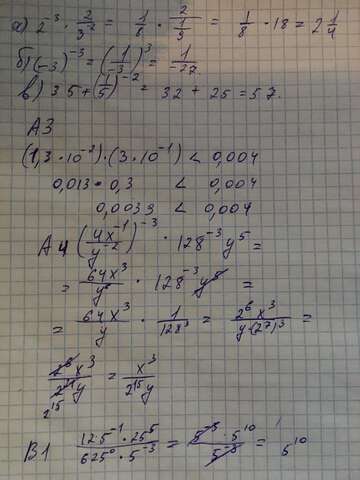 а) 2⁻³ · 2/3⁻² = 1/8 · 2/(1/9) = 1/8 · 18 = 2 1/4
б) (-3)⁻³ = (1/-3)³ = 1/-27.
в) 35 + (1/5)⁻² = 32 + 25 = 57.
А3
(1,3 · 10⁻²) · (3 · 10⁻¹) < 0,004
0,013 · 0,3 < 0,004
0,0039 < 0,004
А4 (4x⁻¹/y⁻²)⁻³ · 128⁻³ y⁵ =
= 64x³/y⁶ · 128⁻³ y⁵ =
= 64x³/y · 1/128³ = 2⁶x³/y(2⁷)³ =
2⁶x³/2²¹y 2¹⁵ = x³/2¹⁵y
В1 125⁻¹ · 25⁵/625⁰ · 5⁻³ = 5⁻³ · 5¹⁰/5⁻³ = 5¹⁰